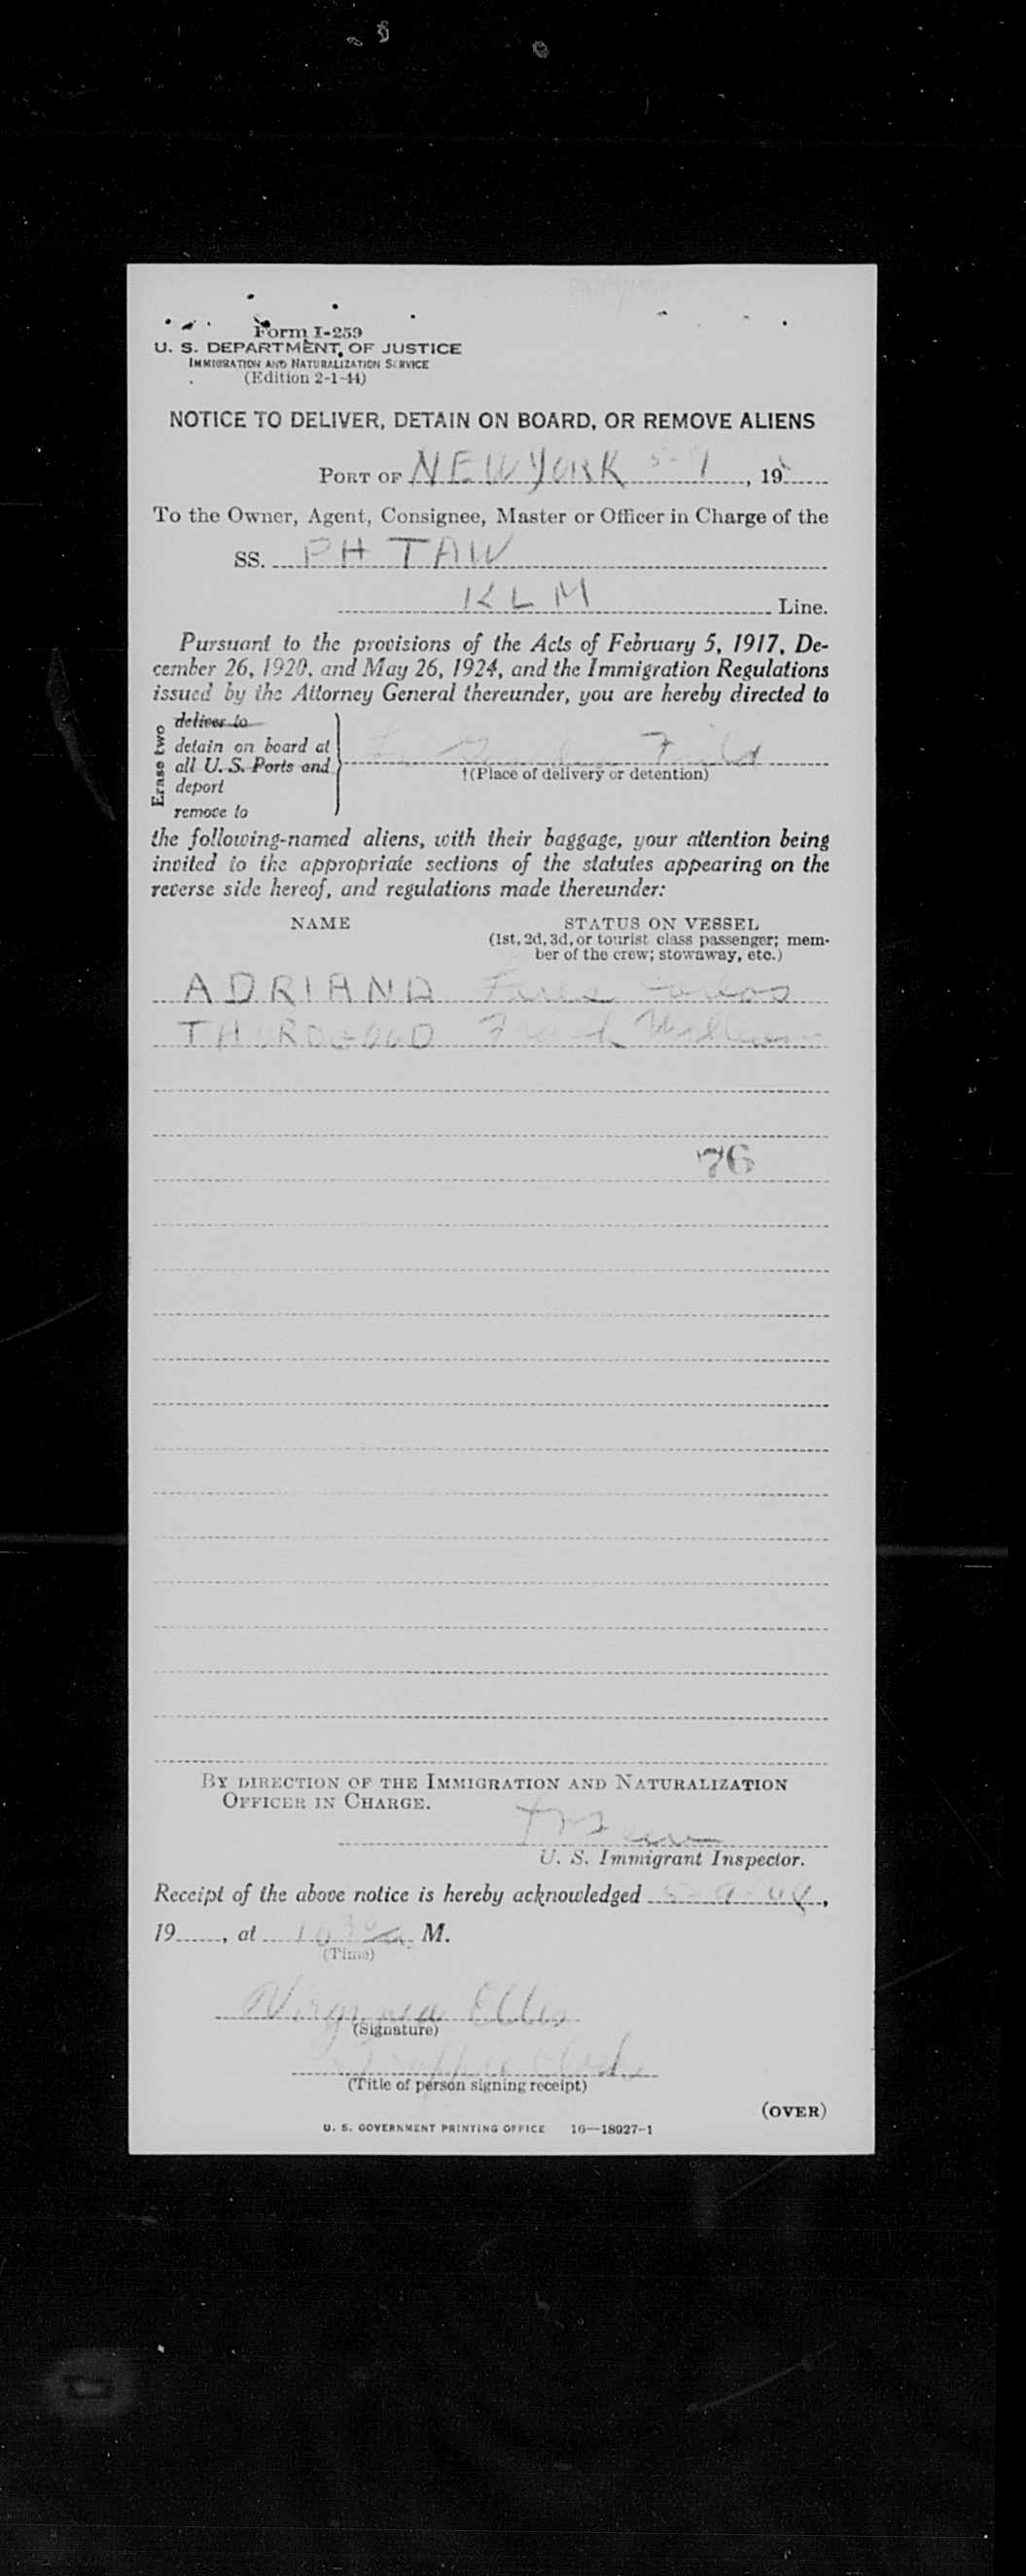 Form I-259
U. S. DEPARTMENT OF JUSTICE
IMMIGRATION AND NATURALIZATION SERVICE
(Edition 2-1-44)
NOTICE TO DELIVER, DETAIN ON BOARD, OR REMOVE ALIENS
PORT OF NEW YORK 5-9, 19
To the Owner, Agent, Consignee, Master or Officer in Charge of the
SS. PH TAW
KLM Line.
Pursuant to the provisions of the Acts of February 5, 1917, De-
cember 26, 1920, and May 26, 1924, and the Immigration Regulations
issued by the Attorney General thereunder, you are hereby directed to
Erase two
deliver to
detain on board at
all U. S. Ports and
deport
remove to
Field
†(Place of delivery or detention)
the following-named aliens, with their baggage, your attention being
invited to the appropriate sections of the statutes appearing on the
reverse side hereof, and regulations made thereunder:
NAME STATUS ON VESSEL
(1st, 2d, 3d, or tourist class passenger; mem-
ber of the crew; stowaway, etc.)
ADRIANO
THUROGOOD Frank William
76
BY DIRECTION OF THE IMMIGRATION AND NATURALIZATION
OFFICER IN CHARGE.
U. S. Immigrant Inspector.
Receipt of the above notice is hereby acknowledged 5-9-48,
19, at 10 30 a. M.
(Time)
Virginia Ellis
(Signature)
(Title of person signing receipt)
(OVER)
U. S. GOVERNMENT PRINTING OFFICE 16—18927-1